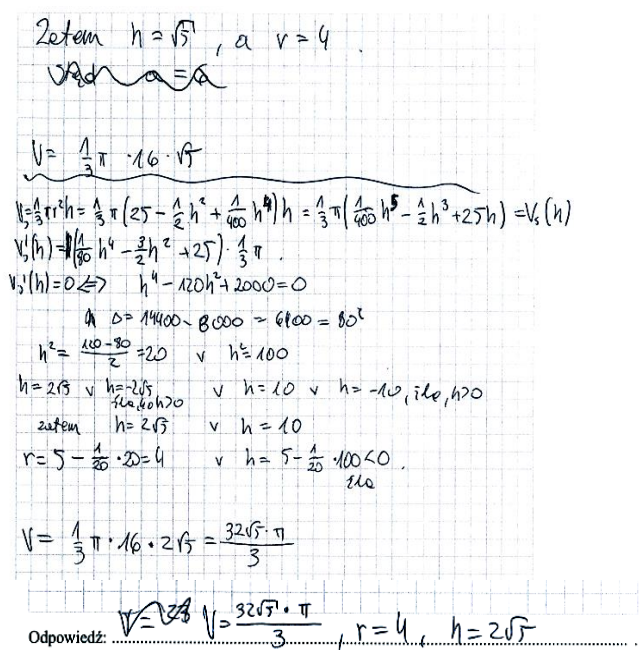 Zatem h = √5, a r = 4.
V = 1/3 π · 16 · √5
V_s = 1/3 πr²h = 1/3 π (25 - 1/2 h² + 1/400 h⁴) h = 1/3 π (1/400 h⁵ - 1/2 h³ + 25h) = V_s(h)
V_s'(h) = (1/80 h⁴ - 3/2 h² + 25) · 1/3 π.
V_s'(h) = 0 ⇔ h⁴ - 120h² + 2000 = 0
Δ = 14400 - 8000 = 6400 = 80²
h² = (120-80)/2 = 20 v h² = 100
h = 2√5 v h = -2√5 v h = 10 v h = -10, źle, h>0
źle, bo h>0
zatem h = 2√5 v h = 10
r = 5 - 1/20 · 20 = 4 v h = 5 - 1/20 · 100 < 0.
źle
V = 1/3 π · 16 · 2√5 = (32√5 · π)/3
Odpowiedź: V = (32√5 · π)/3, r = 4, h = 2√5